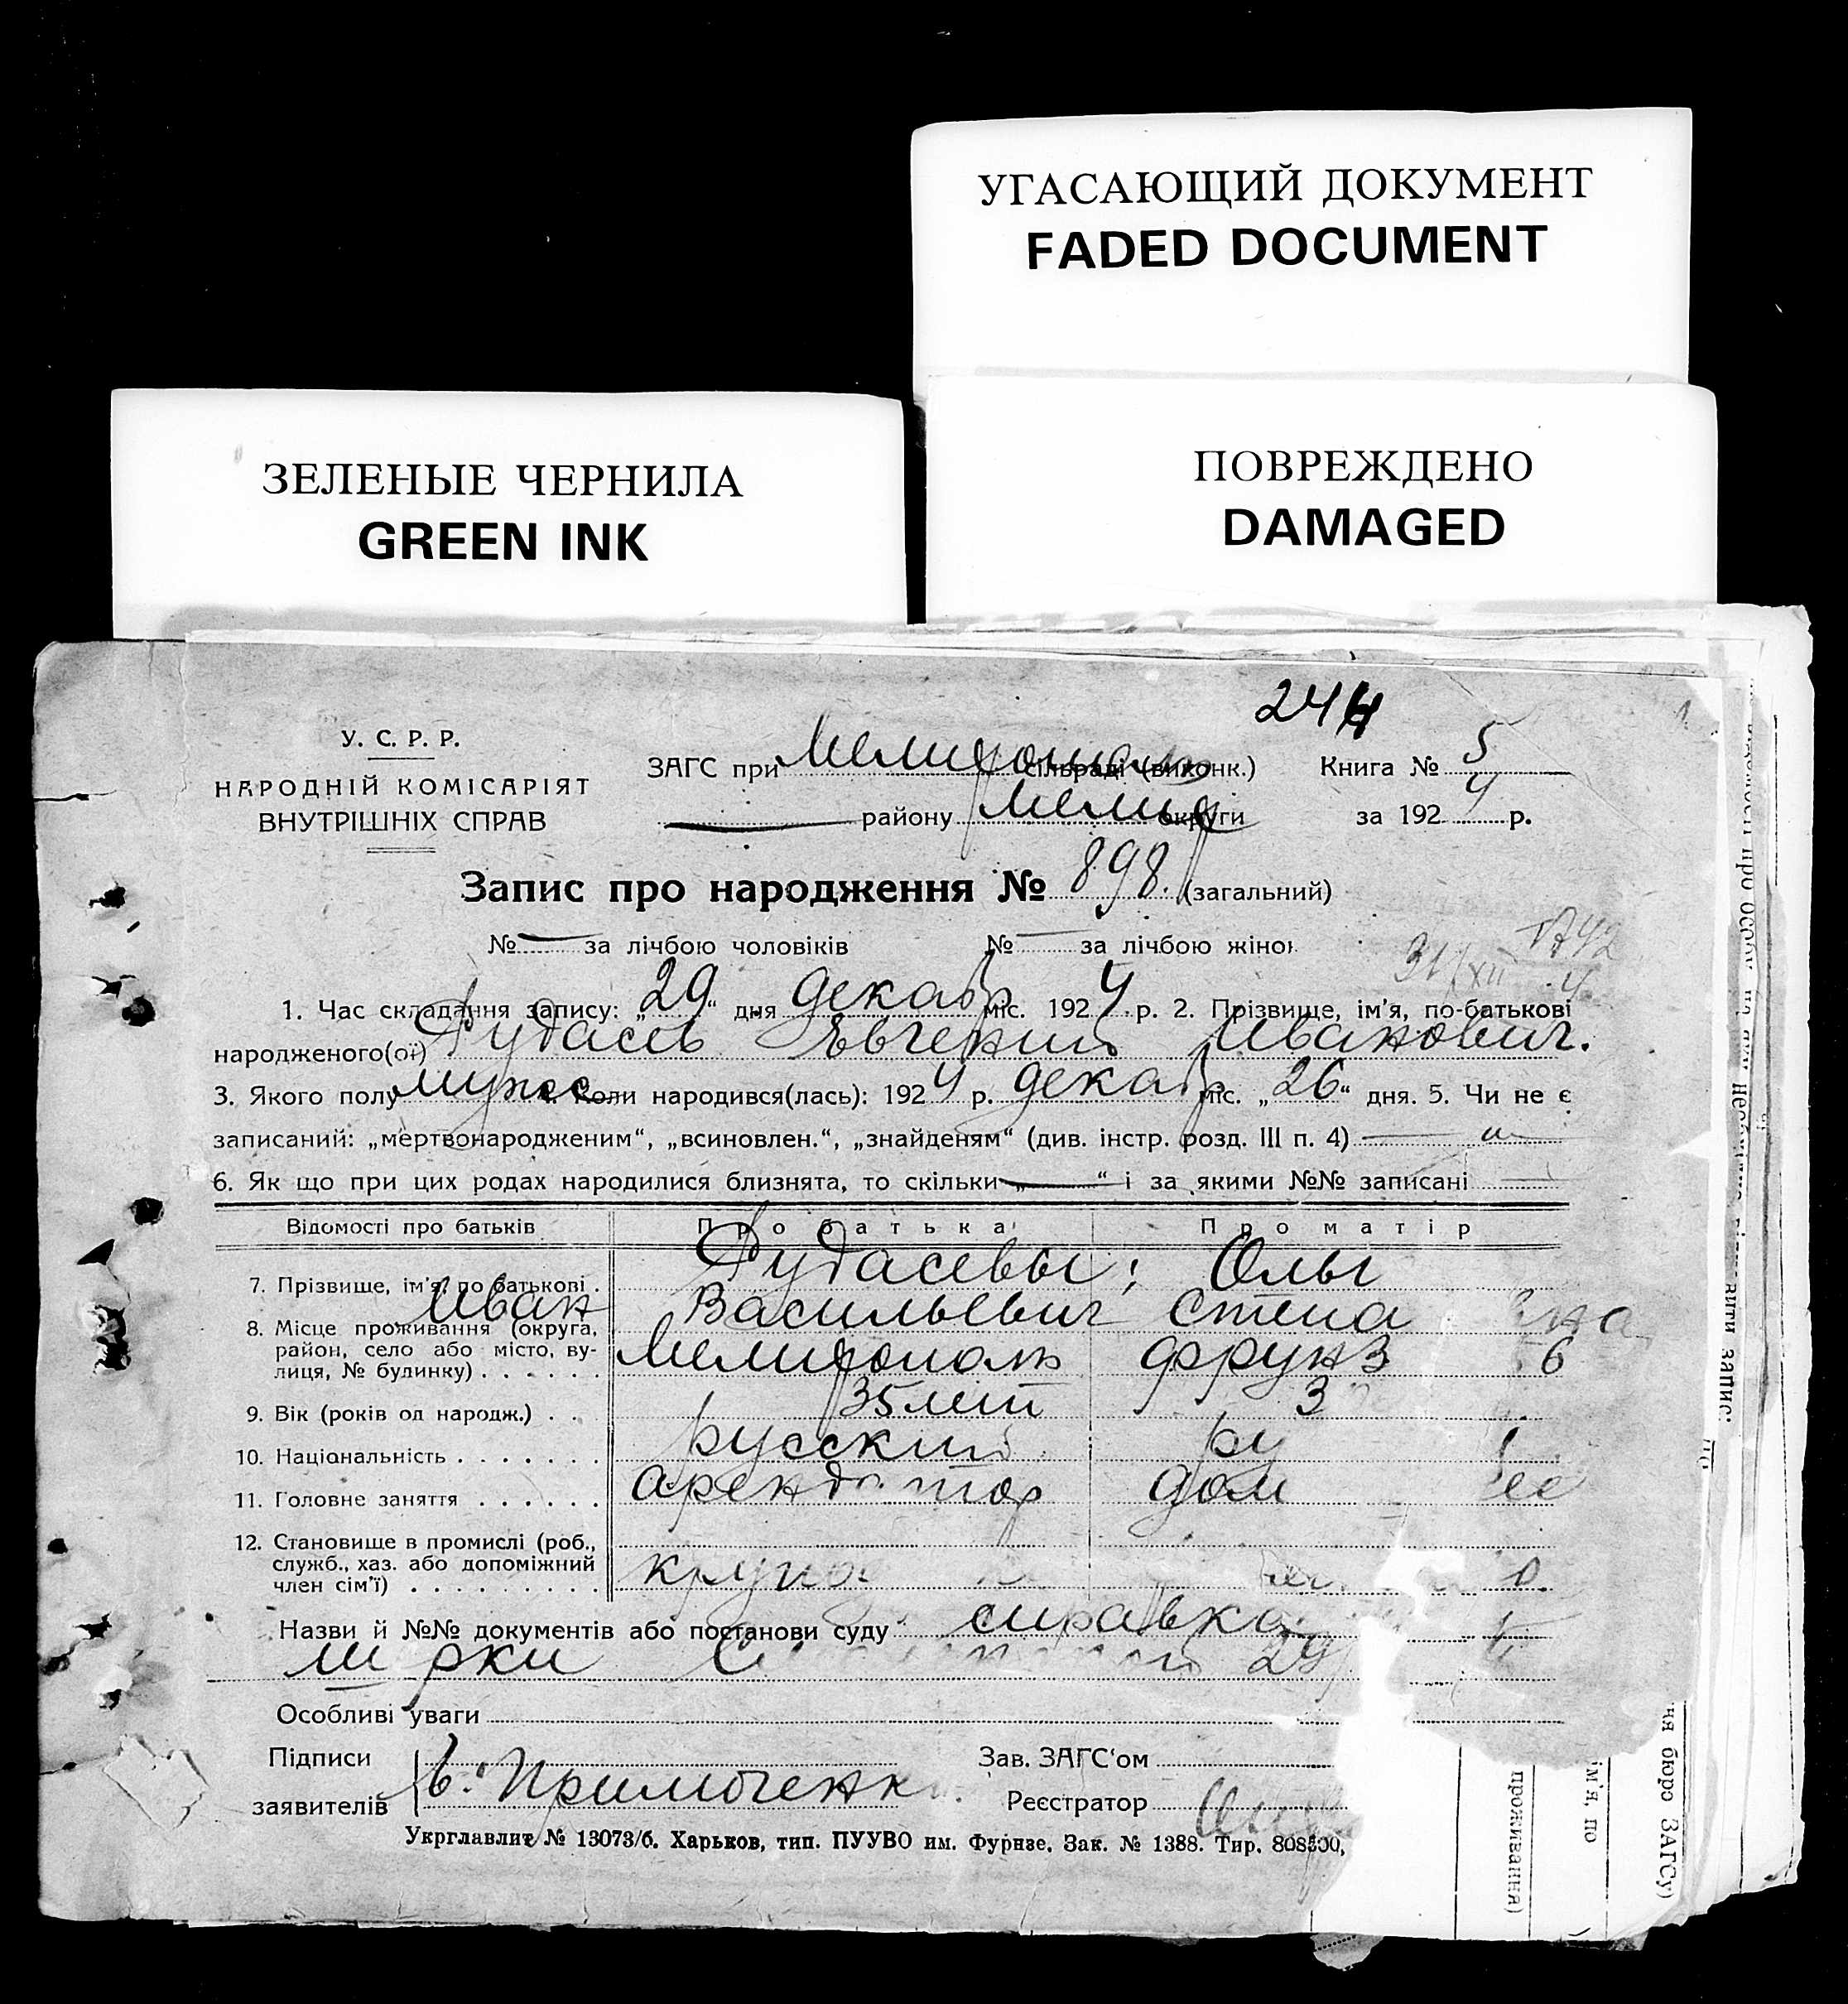 УГАСАЮЩИЙ ДОКУМЕНТ
FADED DOCUMENT
ЗЕЛЕНЫЕ ЧЕРНИЛА
GREEN INK
ПОВРЕЖДЕНО
DAMAGED
244
У. С. Р. Р.
НАРОДНІЙ КОМІСАРІЯТ
ВНУТРІШНІХ СПРАВ
ЗАГС при сільраді (виконк.) Книга № 5
району Мелит округи за 1924 р.
Запис про народження № 898 (загальний)
№ за лічбою чоловіків № за лічбою жінок
31/XII
1. Час складання запису: „29“ дня декабр міс. 1924 р. 2. Прізвище, ім'я, по-батькові
народженого(ої) Рудасев Евгений Иванович.
3. Якого полу мужс Коли народився(лась): 1924 р. декабр міс. „26“ дня. 5. Чи не є
записаний: „мертвонародженим“, „всиновлен.“, „знайденям“ (див. інстр. розд. III п. 4)
6. Як що при цих родах народилися близнята, то скільки „ “ і за якими №№ записані
Відомості про батьків Про батька Про матір
7. Прізвище, ім'я, по батькові . Рудасевы; Ольг
Иван Васильевич Степа вна
8. Місце проживання (округа,
район, село або місто, ву-
лиця, № будинку) . . . . . . Мелитополь фрунз 6
9. Вік (років од народж.) . . 35 лет 3
10. Національність . . . . . . . русский ру
11. Головне заняття . . . . . . арендатор дом
12. Становище в промислі (роб.,
служб., хаз. або допоміжний
член сім'ї) . . . . . . . . .
Назви й №№ документів або постанови суду справка
29
Особливі уваги
Підписи Зав. ЗАГС'ом
заявителів Реєстратор
Укрглавлит № 13073/б. Харьков, тип. ПУУВО им. Фурнзе, Зак. № 1388. Тир. 808500,
проживання)
ім'я, по
ня бюро ЗАГСу)